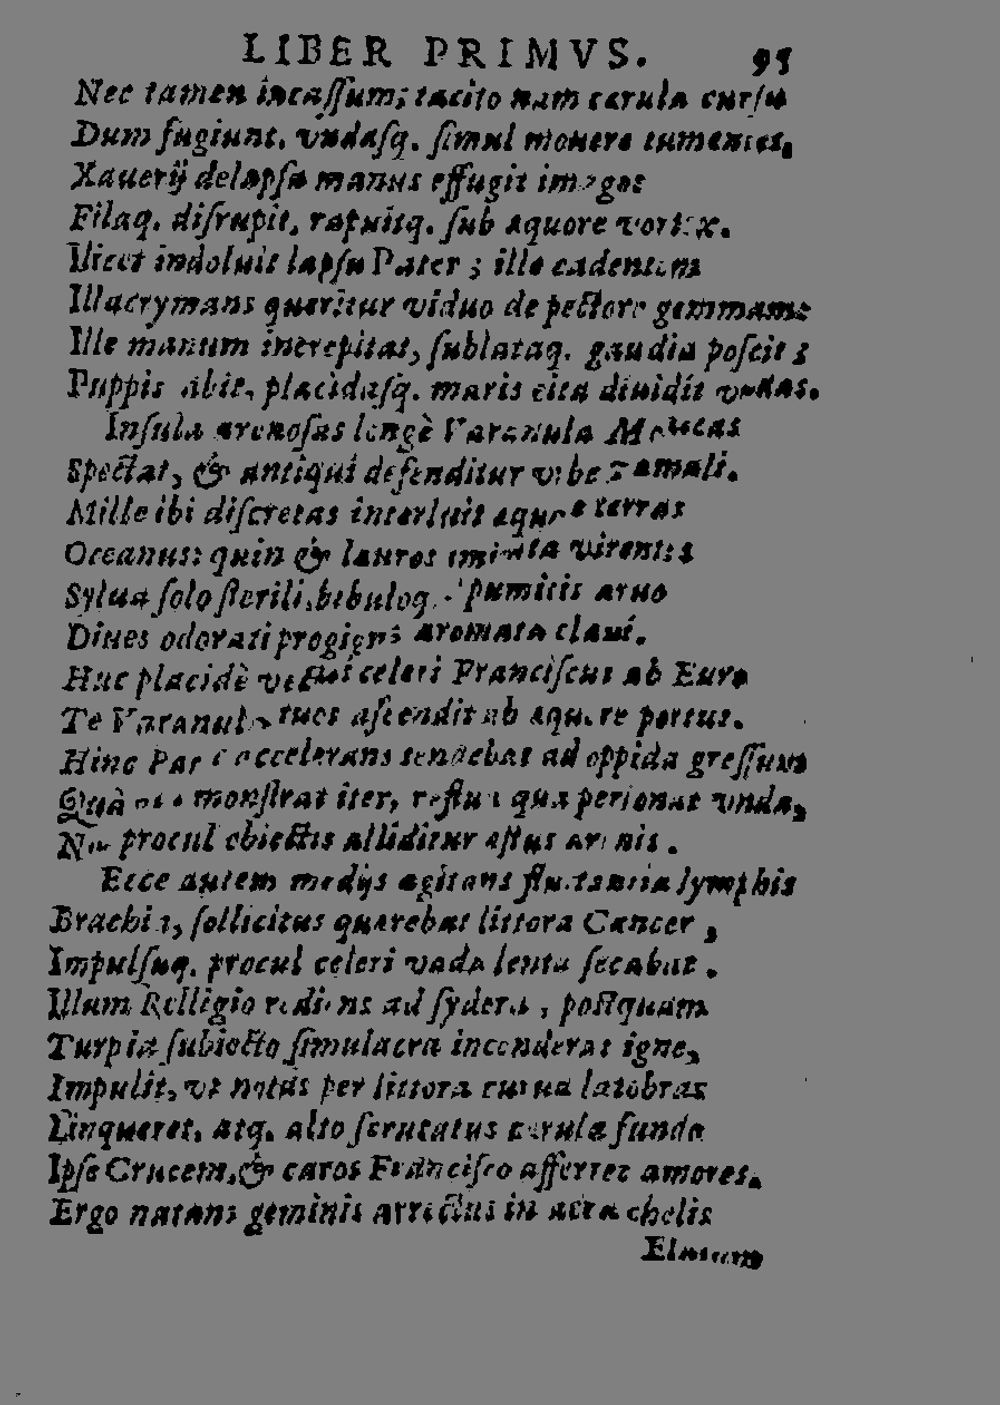 LIBER PRIMVS. 95
Nec tamen incaſſum; tacito nam cærula curſu
Dum fugiunt, vndaſq. ſimul mouere tumentes,
Xauerij delapſa manus effugit imago:
Filaq. diſrupit, rapuitq. ſub æquore vortex.
Vicet indoluit lapſu Pater; illo cadentem
Illacrymans queritur viduo de pectore gemmam:
Ille manum increpitat, ſublataq. gaudia poſcit;
Puppis abit, placidaſq. maris cita diuidit vndas.
Inſula arenoſas longè Varanula
Spectat, & antiqui defenditur vrbe Tamali.
Mille ibi diſcretas interluit æquore terras
Oceanus: quin & lauros imitata virentes
Sylua ſolo ſterili, bibuloq. pumicis aruo
Diues odorati progignis aromata claui.
Huc placidè celeri Franciſcus ab Euro
Te Varanula tuos aſcendit ab æquore portus.
Hinc accelerans tendebat ad oppida greſſum
Quà monſtrat iter, reflua qua perſonat vnda,
Nec procul obiectis alliditur æſtus arenis.
Ecce autem medijs agitans fluitantia lymphis
Brachia, ſollicitus quærebat littora Cancer,
Impulſuq. procul celeri vada lenta ſecabat.
Illum Relligio rediens ad ſydera, poſtquam
Turpia ſubiecto ſimulacra incenderat igne,
Impulit, vt notas per littora curua latebras
Linqueret, atq. alto ſcrutatus cærula fundo
Ipſe Crucem, & caros Franciſco afferret amores.
Ergo natans geminis arrectus in aera chelis